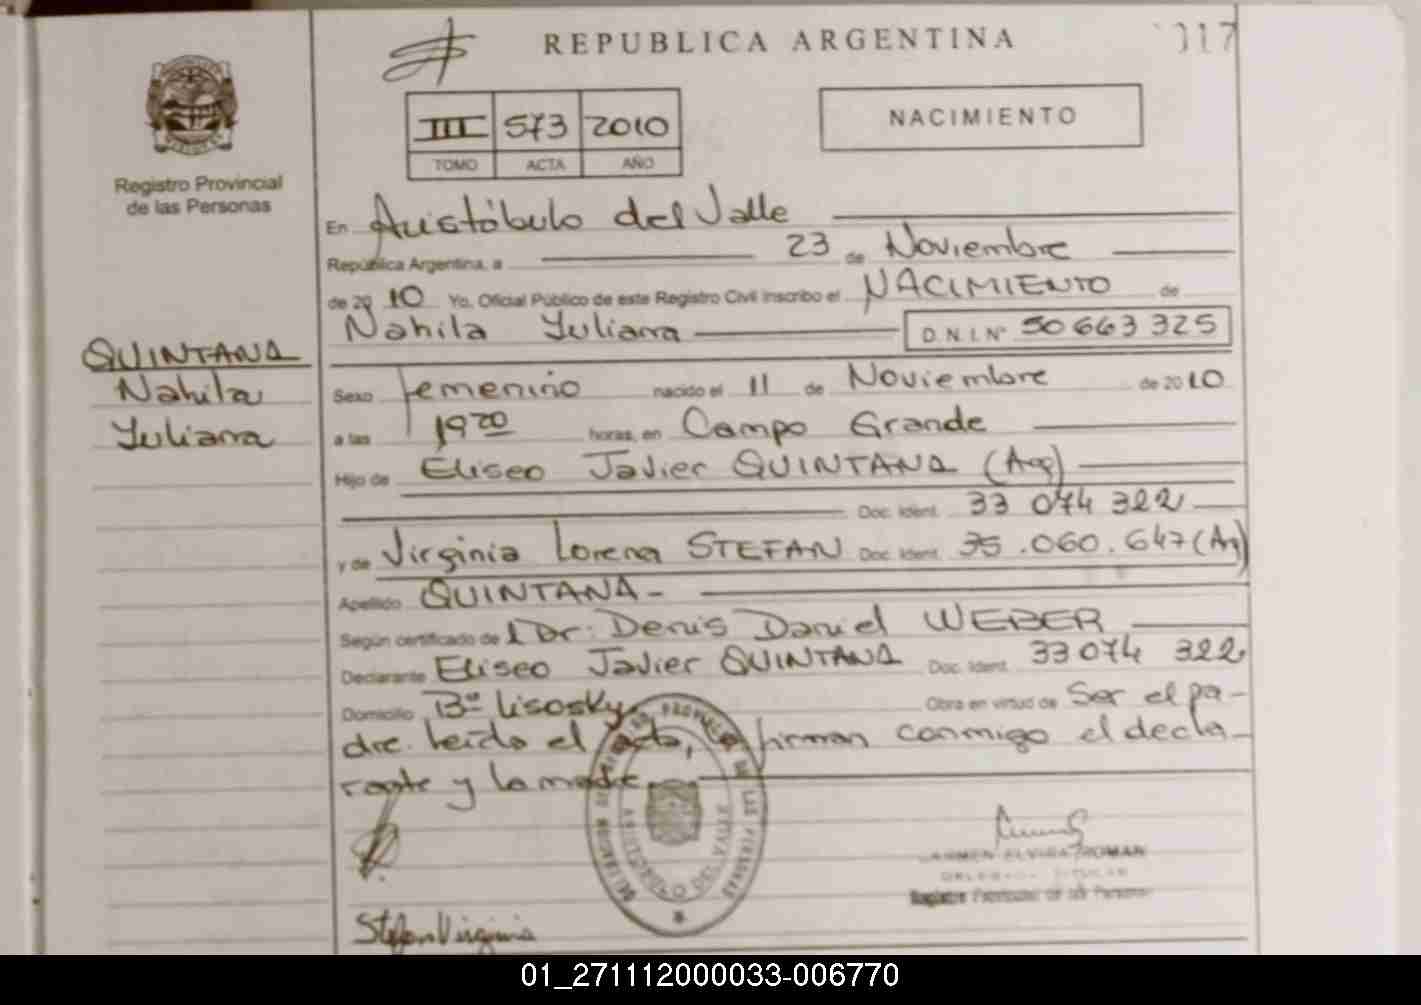 REPUBLICA ARGENTINA
017
III 573 2010
TOMO ACTA AÑO
NACIMIENTO
Registro Provincial
de las Personas
QUINTANA
Nahila
Yuliana
En Aristóbulo del Valle
República Argentina, a 23 de Noviembre
de 2010 Yo, Oficial Público de este Registro Civil inscribo el NACIMIENTO de
Nahila Yuliana D.N.I. Nº 50 663 325
Sexo femenino nacido el 11 de Noviembre de 2010
a las 19 20 horas, en Campo Grande
Hijo de Eliseo Javier QUINTANA (Arg)
Doc. Ident. 33 074 322
y de Virginia Lorena STEFAN Doc. Ident. 35.060.647 (Arg)
Apellido QUINTANA-
Según certificado de Dr: Denis Daniel WEBER
Declarante Eliseo Javier QUINTANA Doc. Ident. 33 074 322
Domicilio Bº Lisosky Obra en virtud de Ser el pa-
dre. Leída el acta, firman conmigo el decla-
rante y la madre.
CARMEN ELVIRA ROMAN
DELEGADA TITULAR
Registro Provincial de las Personas
Stefan Virginia
01_271112000033-006770